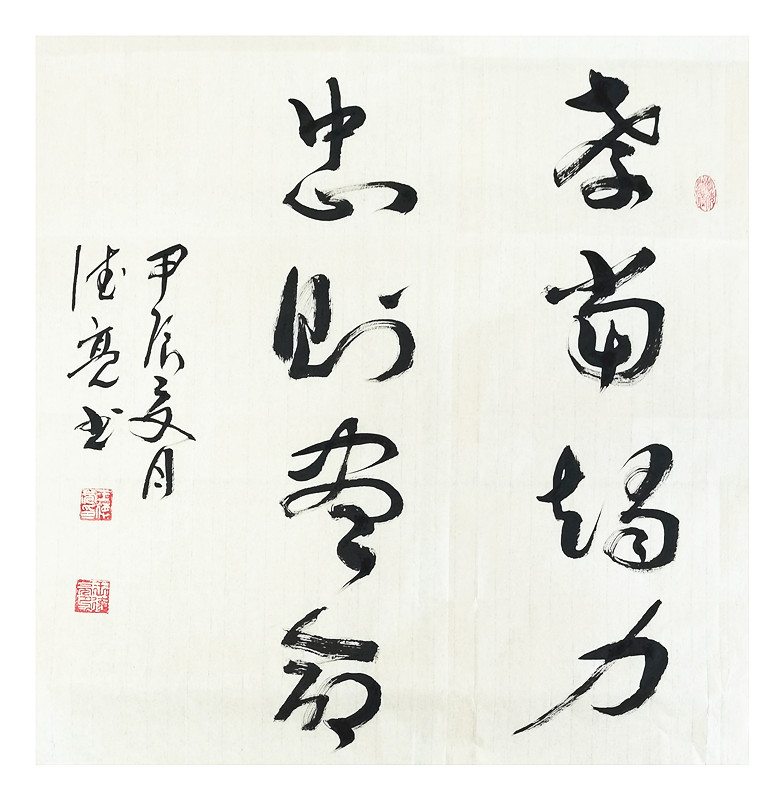 孝當竭力
忠则尽命
甲辰夏月
德亮书